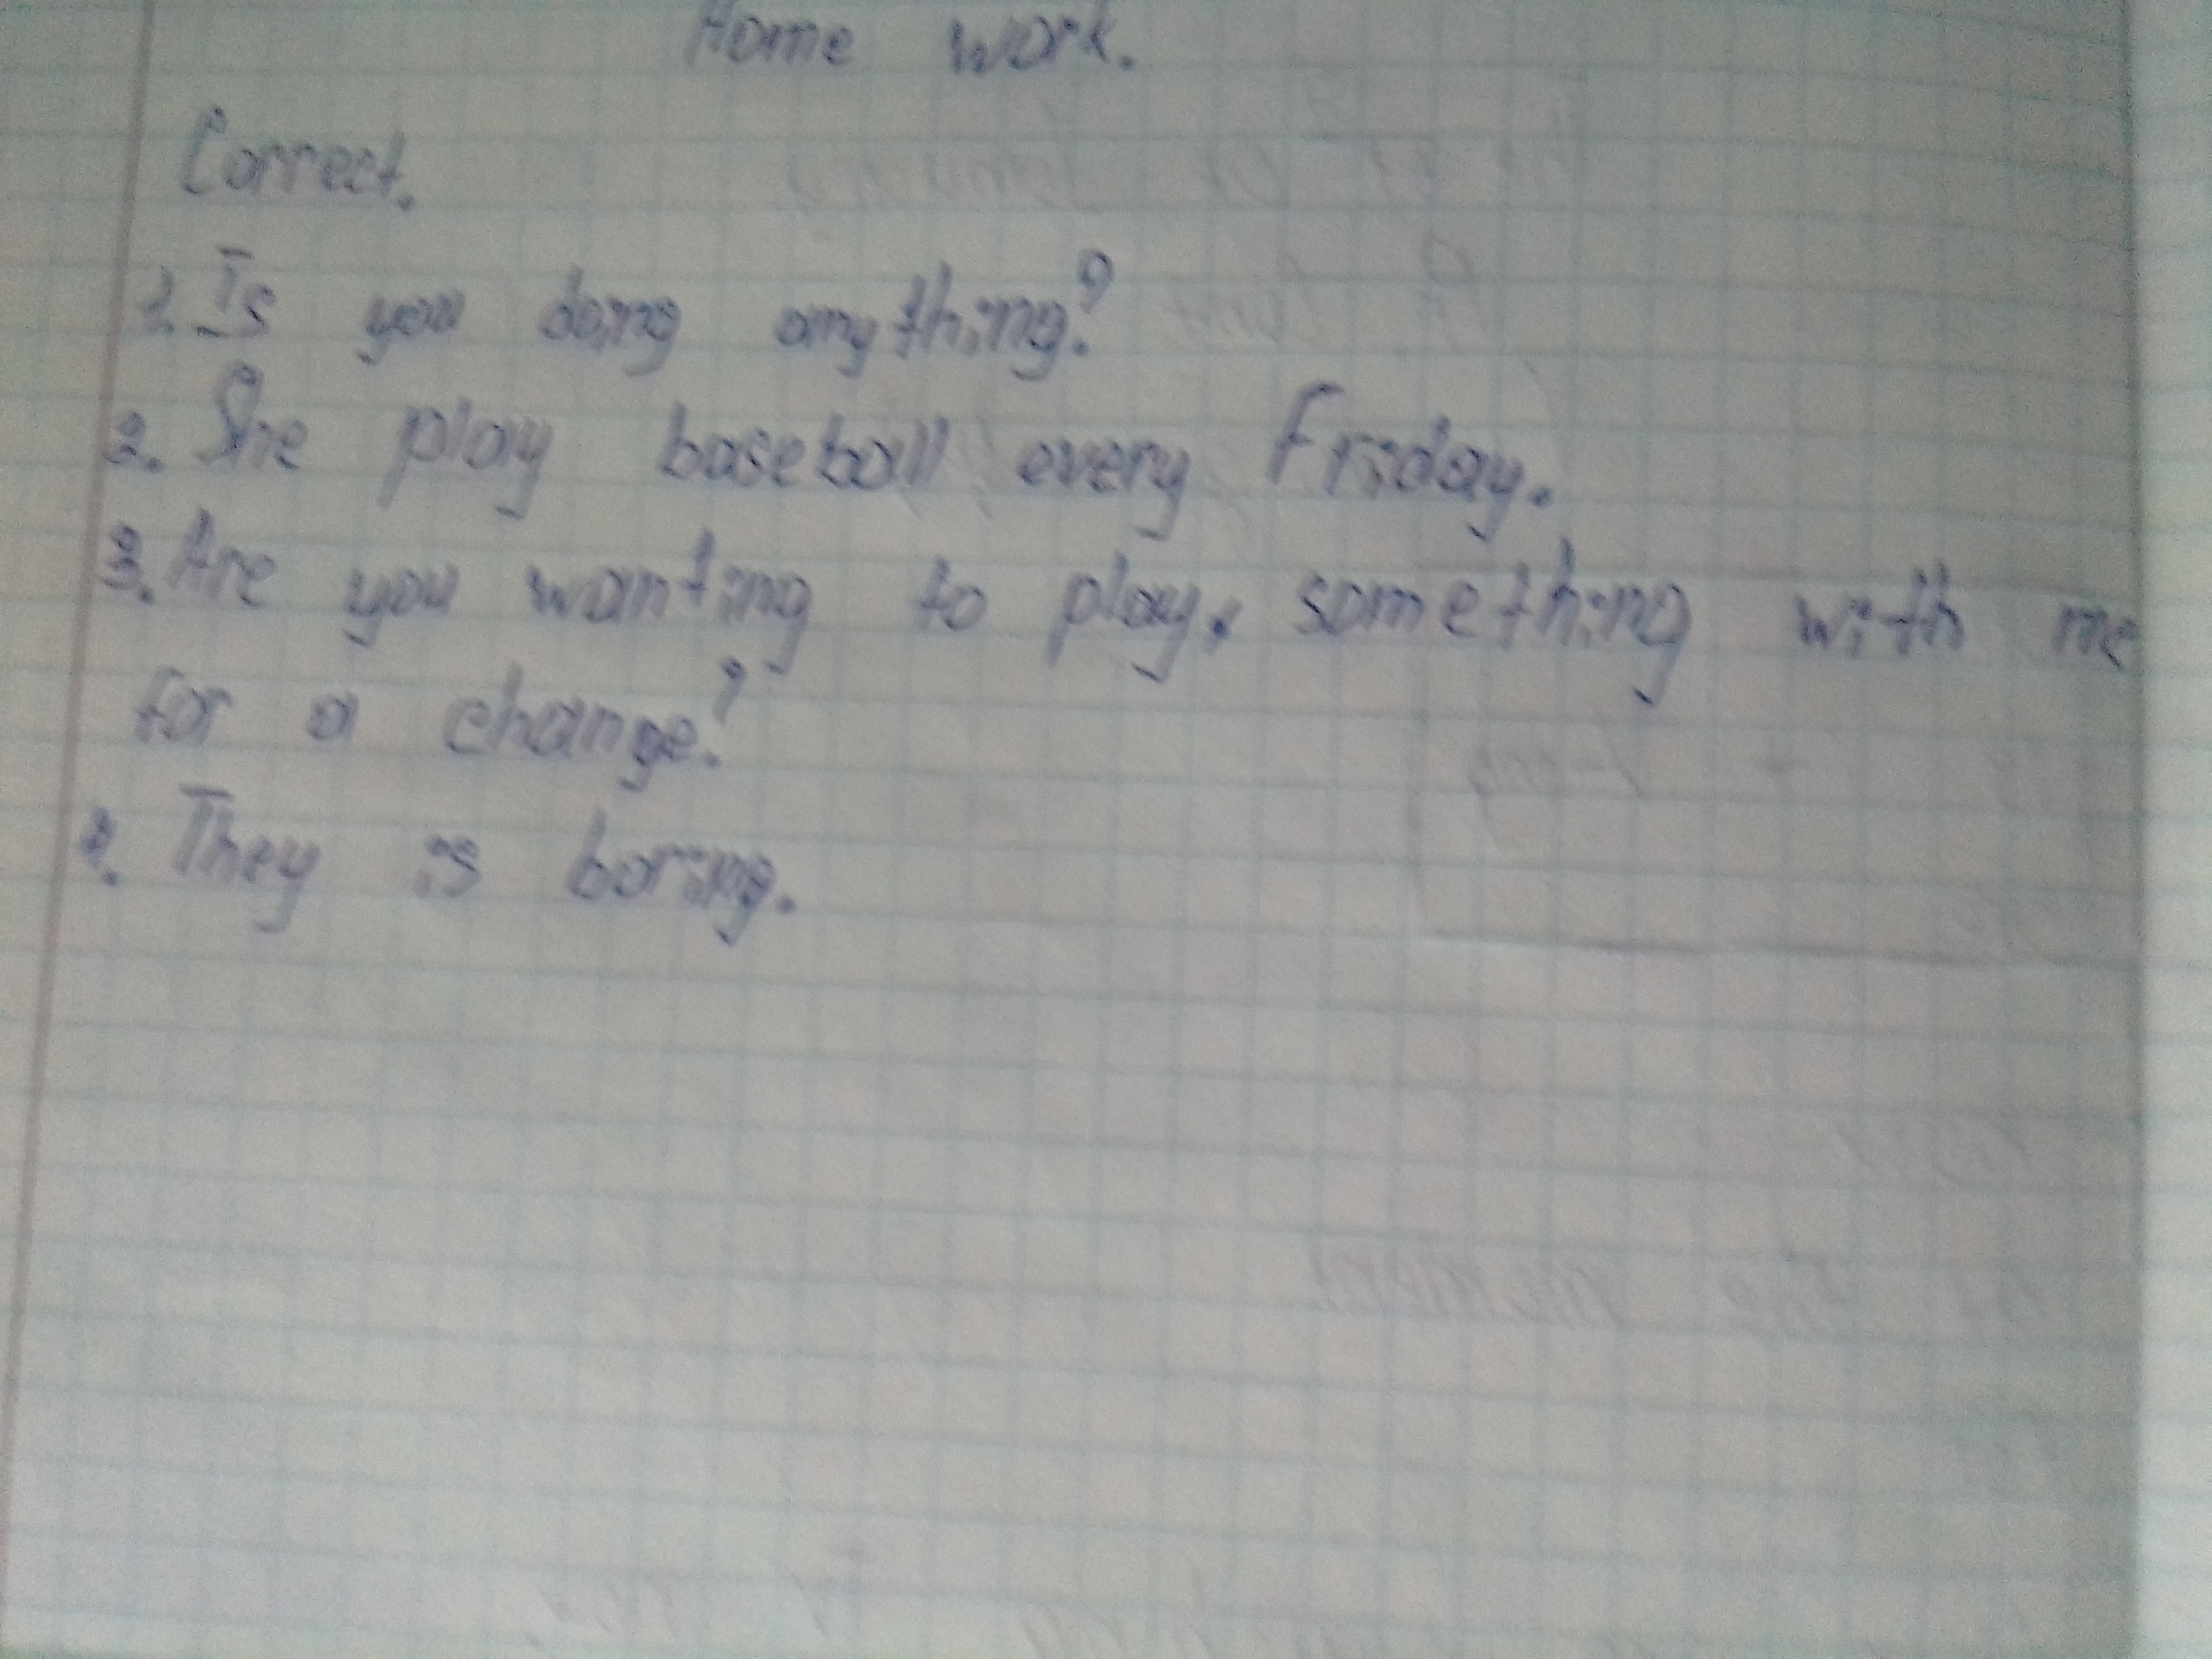 Home work.
Correct.
1. Is you doing anything?
2. She play baseball every Friday.
3. Are you wanting to play, something with me
for a change?
4. They is boring.